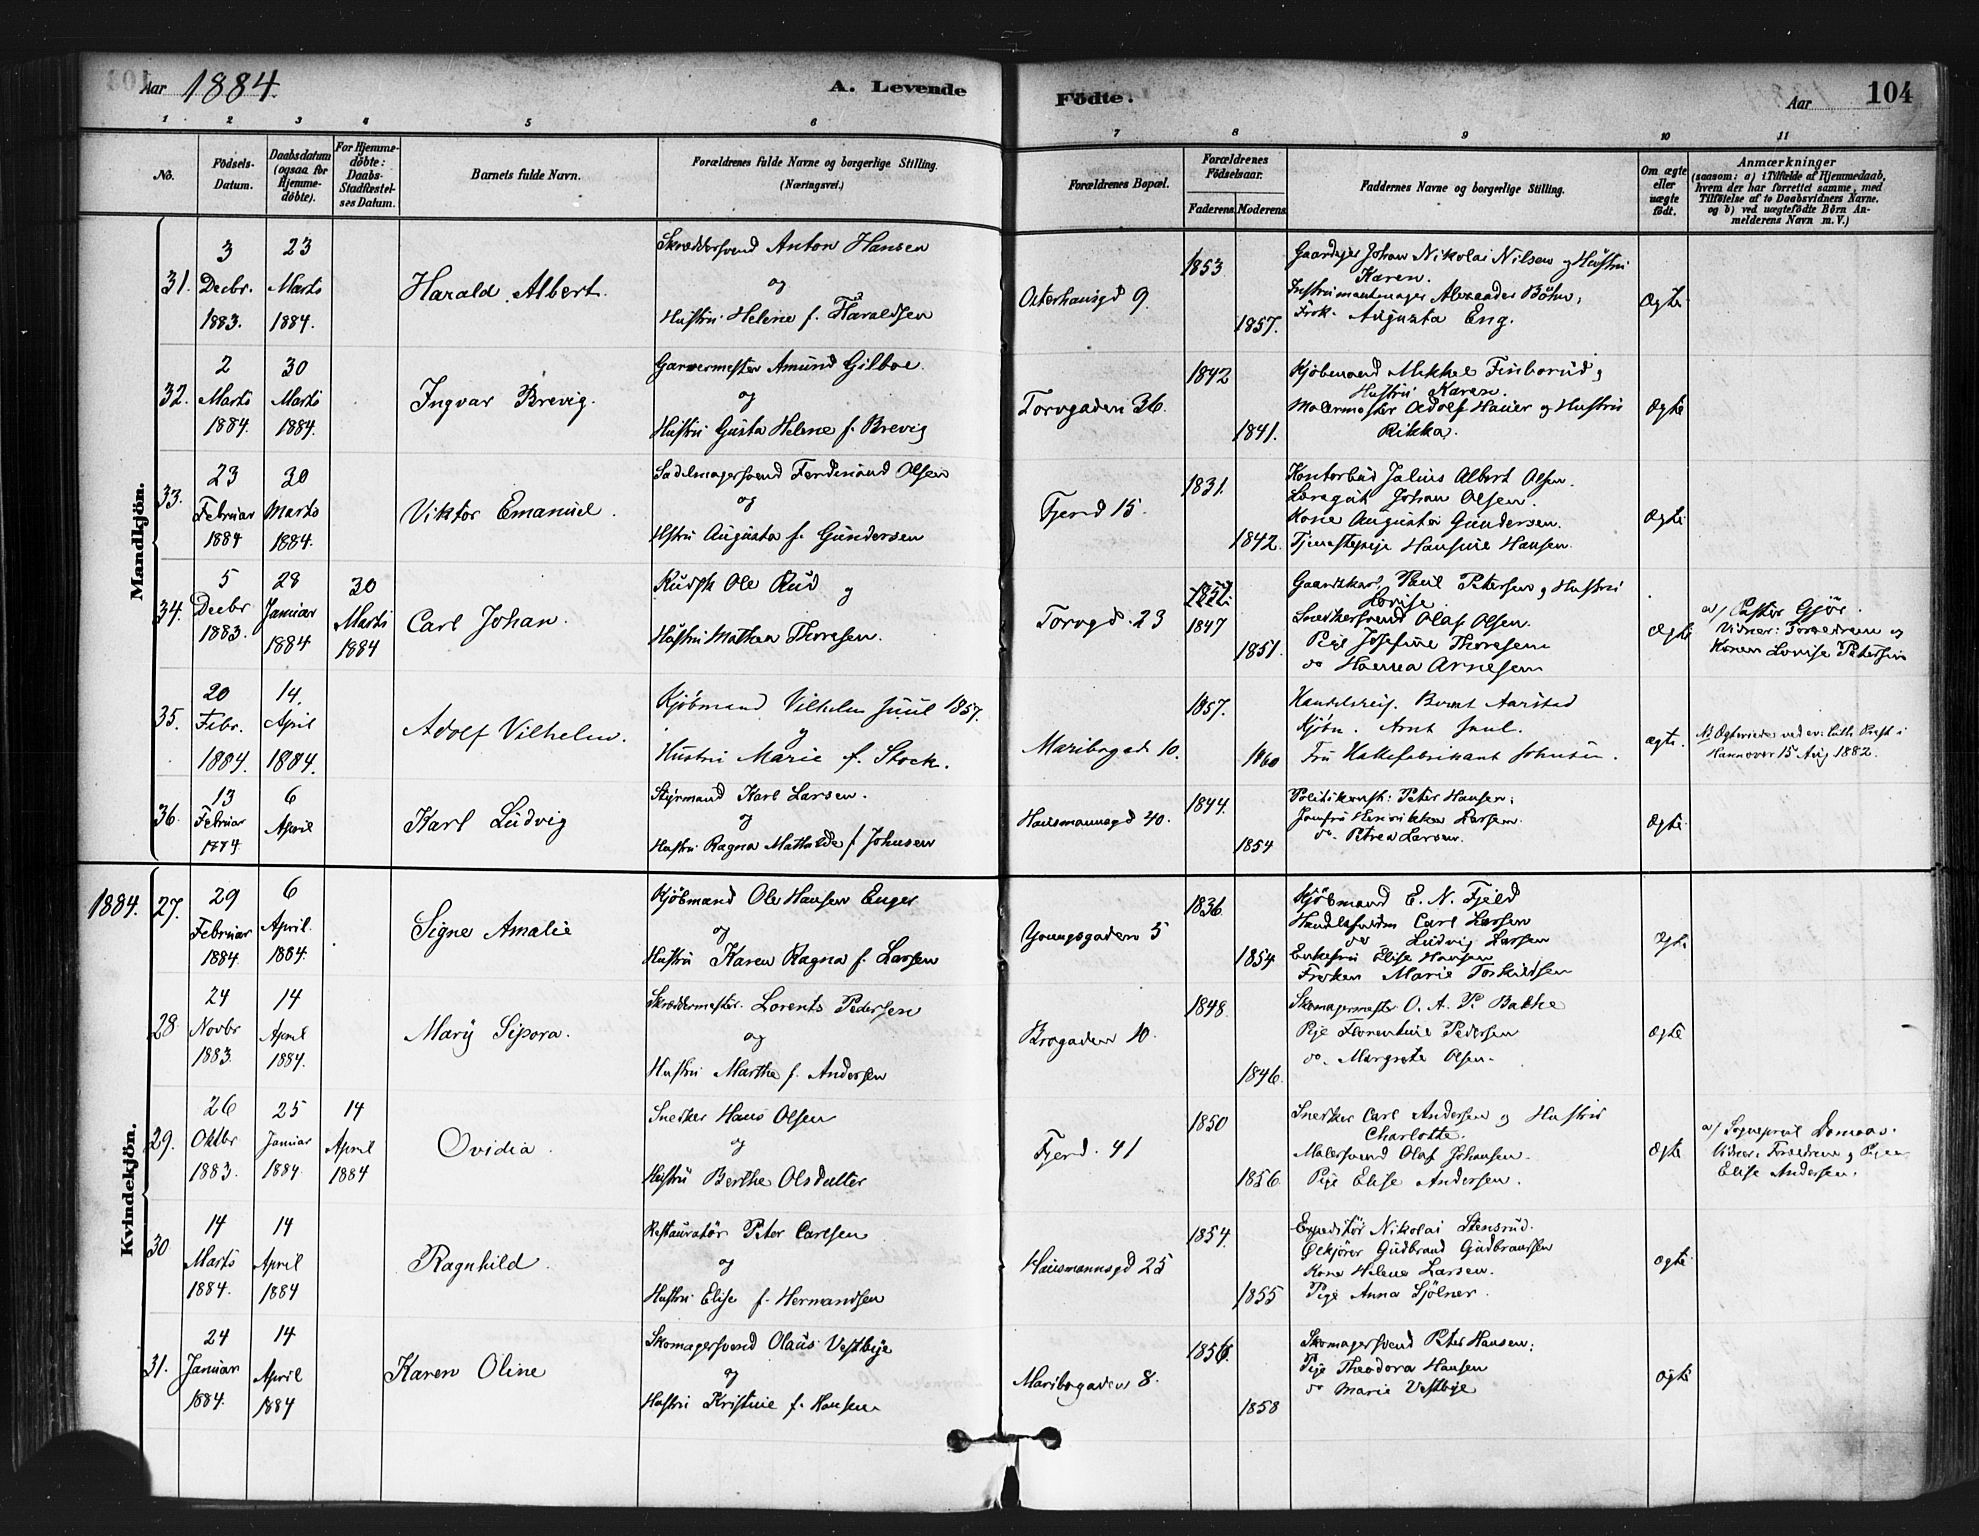 Aar 1884. A. Levende Födte. Aar 104
1 2 3 4 5 6 7 8 9 10 11
No.
Födsels-Datum.
Daabsdatum (ogsaa for Hjemme-döbte).
For Hjemme-döbte: Daabs-Stadfæstel-ses Datum.
Barnets fulde Navn.
Forældrenes fulde Navne og borgerlige Stilling. (Næringsvei.)
Forældrenes Bopæl.
Forældrenes Födselsaar.
Faderens. Moderens.
Faddernes Navne og borgerlige Stilling.
Om ægte eller uægte födt.
Anmærkninger
(saasom: a) i Tilfælde af Hjemmedaab,
hvem der har forrettet samme, med
Tilföielse af to Daabsvidners Navne.
og b) ved uægtefödte Börn An-
melderens Navn m. V.)
Mandkjön.
31.
3 Decbr. 1883.
23 Marts 1884.
Harald Albert.
Skræddersvend Anton Hansen
og
Hustru Helene f. Haraldsen
Osterhausgd 9.
1853
1857.
Gaardejer Johan Nikolai Nilsen og Hustru
Karen.
Instrumentmager Alexander Böhn,
Frök. Augusta Eng.
Ægte
32.
2 Marts 1884.
30 Marts 1884.
Ingvar Brevig.
Garvermester Amund Gilboe
og
Hustru Gusta Helene f. Brevig
Torvgaden 36.
1842
1841.
Kjöbmand Mikkel Finborud og
Hustru Karen.
Malermester Adolf Hauer og Hustru
Rikka.
Ægte
33.
23 Februar 1884
30 Marts 1884.
Viktor Emanuel.
Sadelmagersvend Ferdinand Olsen
og
Hstru Augusta f. Gundersen
Fjerd 15.
1831.
1842.
Kontorbud Julius Albert Olsen.
Johan Olsen.
Kone Augusta Gundersen.
Tjenestepige Hansine Hansen.
Ægte
34.
5 Decbr 1883.
28 Januar 1884
30 Marts 1884
Carl Johan.
Kudsk Ole Rud
og
Hustru Mathea Thoresen.
Torvgd. 23
1847
1851.
Gaardskarl Paul Petersen og Hustru
Lovise.
Snedkersvend Olaf Olsen.
Pige Josefine Thoresen
do Hanna Arnesen
Ægte
a/ Pastor Gjör.
Vidner: Forældrene og
Konen Lovise Petersen
35.
20 Febr. 1884.
14. April 1884.
Adolf Vilhelm.
Kjöbmand Vilhelm Juul 1857.
og
Hustru Marie f. Stock.
Maribogad 10.
1857.
1860
Handelsreis. Bernt Aarstad
Kjöbm. Arnt Juul.
Fru Johnsen.
ægte.
Hannover 15 Aug 1882.
36.
13 Februar 1884
6 April
Karl Ludvig
Styrmand Karl Larsen.
og
Hustru Ragna Mathilde f Johnsen
Hausmannsgd 40.
1844.
1854
Politikonst: Peter Hansen;
Jomfru Henrikka Larsen.
do. Petrea Larsen.
Ægte
Kvindekjön.
1884.
27.
29 Februar 1884.
6 April. 1884.
Signe Amalie
Kjöbmand Ole Hansen Enger
og
Hustru Karen Ragna f. Larsen
Youngsgaden 5
1836
1854
Kjöbmand E. N. Fjeld
Carl Larsen
do Ludvig Larsen
Enkefru Elise Hansen
Fröken Marie Torkildsen
Ægte
28.
24 Novbr 1883.
14 April 1884.
Mary Sipora.
Skræddermester. Lorents Pedersen
og
Hustru Marthe f. Andersen
Brogaden 10.
1848.
1846.
Skomagermester O. A. P. Bakke
Pige Florentine Pedersen
do. Margrete Olsen.
Ægte
29.
26 Oktbr 1883.
25 Januar 1884.
14 April 1884
Ovidia.
Snedker Hans Olsen
og
Hustru Berthe Olsdatter
Fjerd. 41
1850
1856.
Snedker Carl Andersen og Hustru
Charlotte.
Malersvend Olaf Johansen.
Pige Elise Andersen.
Ægte
a/ Sognepræst Domaas.
Vidner: Forældrene og Pigen
Elise Andersen.
30
14 Marts 1884.
14 April 1884
Ragnhild.
Restauratör Peter Carlsen
og
Hustru Elise f. Hermandsen
Hausmannsgd 25
1854.
1855
Expeditör Nikolai Stensrud.
Ölkjörer Gudbrand Gudbrandsen
Kone Helene Larsen.
Pige Anna Sjölner.
ægte
31.
24 Januar 1884.
14 April 1884
Karen Oline
Skomagersvend Olaus Vestbye
og
Hustru Kristine f. Hansen
Maribogaden 8.
1856.
1858
Skomagersvend Peter Hansen;
Pige Theodora Hansen
do Marie Vestbye
ægte